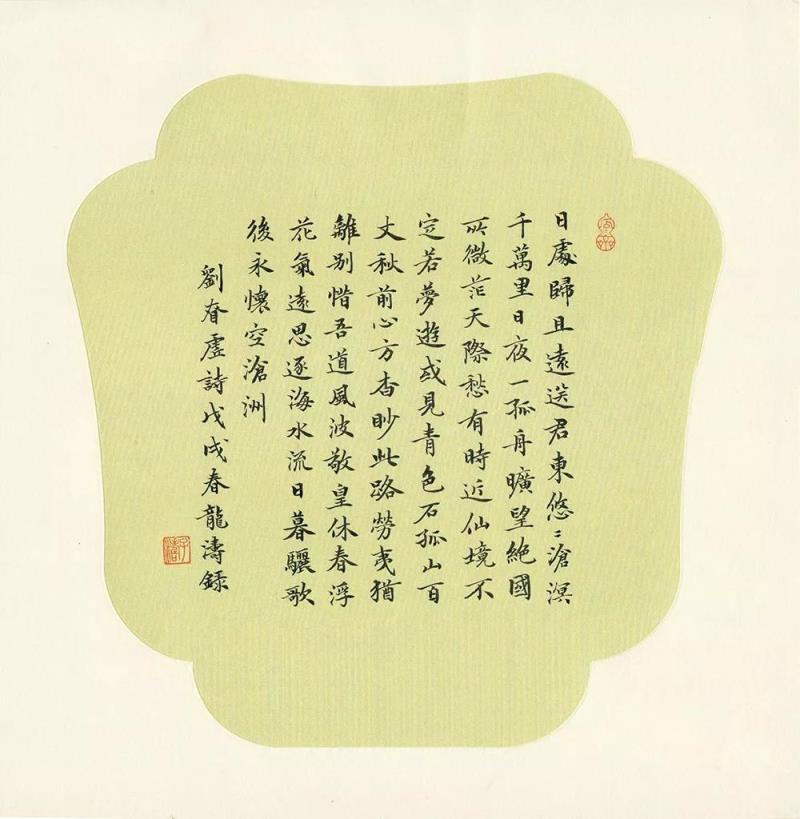 日處歸且遠送君東悠〻滄溟
千萬里日夜一孤舟曠望絕國
所微茫天際愁有時近仙境不
定若夢遊或見青色石孤山百
丈秋前心方杳眇此路勞夷猶
離別惜吾道風波敬皇休春浮
花氣遠思逐海水流日暮驪歌
後永懷空滄洲
劉眘虛詩戊戌春龍濤錄